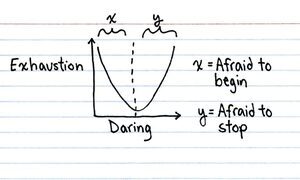 x y
Exhaustion
Daring
x = Afraid to
begin
y = Afraid to
stop